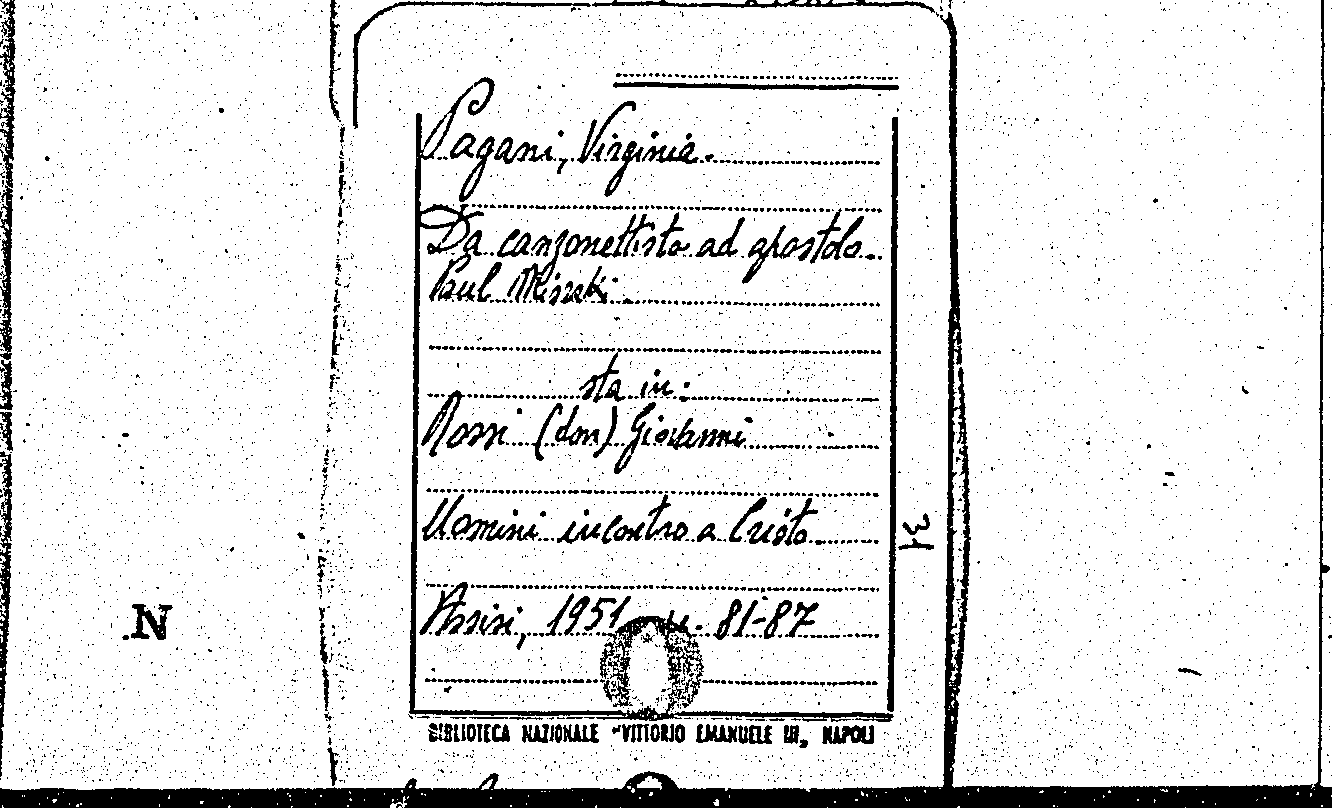 Pagani, Virginia.
Da canzonettista ad apostolo.
Paul
sta in:
Rossi (don) Giovanni
Uomini incontro a Cristo.
Assisi, 1951 81-87
31
N
BIBLIOTECA NAZIONALE "VITTORIO EMANUELE III„ NAPOLI